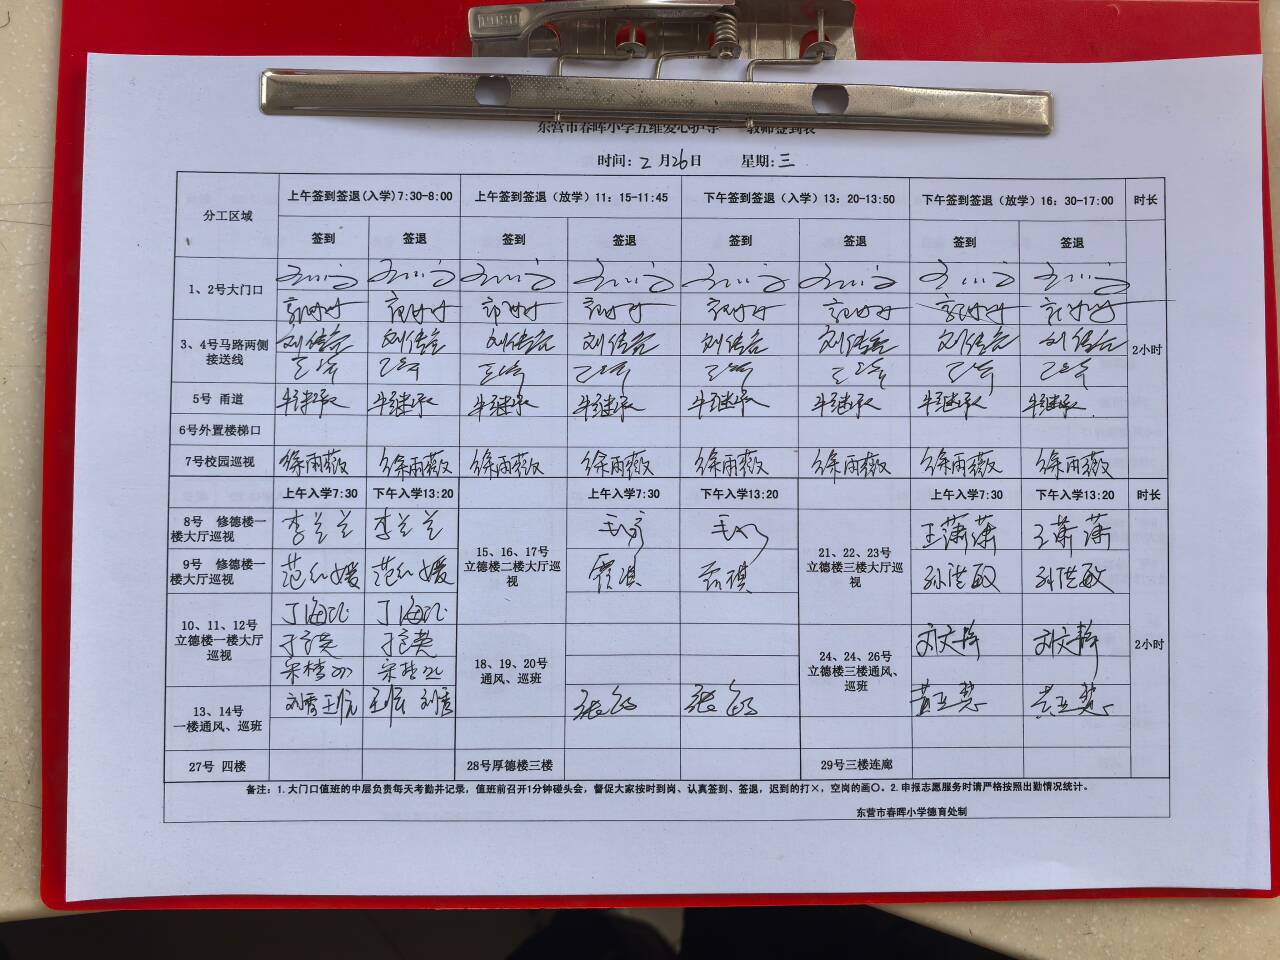 东营市春晖小学五维爱心护学 教师签到表
时间：2月26日 星期：三
分工区域 上午签到签退(入学)7:30-8:00 上午签到签退（放学）11：15-11:45 下午签到签退（入学）13：20-13:50 下午签到签退（放学）16：30-17:00 时长
签到 签退 签到 签退 签到 签退 签到 签退
1、2号大门口
3、4号马路两侧接送线 刘传 刘传 刘传 刘传 刘传 刘传 刘传 刘传 2小时
5号 甬道 牛继承 牛继承 牛继承 牛继承 牛继承 牛继承 牛继承 牛继承
6号外置楼梯口
7号校园巡视 徐雨薇 徐雨薇 徐雨薇 徐雨薇 徐雨薇 徐雨薇 徐雨薇 徐雨薇
上午入学7:30 下午入学13:20 上午入学7:30 下午入学13:20 上午入学7:30 下午入学13:20 时长
8号 修德楼一楼大厅巡视 李兰兰 李兰兰
9号 修德楼一楼大厅巡视 范红媛 范红媛
10、11、12号
立德楼一楼大厅巡视
丁海 丁海
13、14号
一楼通风、巡班
刘秀
27号 四楼
15、16、17号
立德楼二楼大厅巡视
18、19、20号
通风、巡班
28号厚德楼三楼
21、22、23号
立德楼三楼大厅巡视
王潇潇 王潇潇
孙洪敏 孙洪敏
24、24、26号
立德楼三楼通风、巡班
刘文静 刘文静
黄玉慧 黄玉慧
29号三楼连廊
2小时
备注：1.大门口值班的中层负责每天考勤并记录，值班前召开1分钟碰头会，督促大家按时到岗、认真签到、签退，迟到的打×，空岗的画〇。2.申报志愿服务时请严格按照出勤情况统计。
东营市春晖小学德育处制